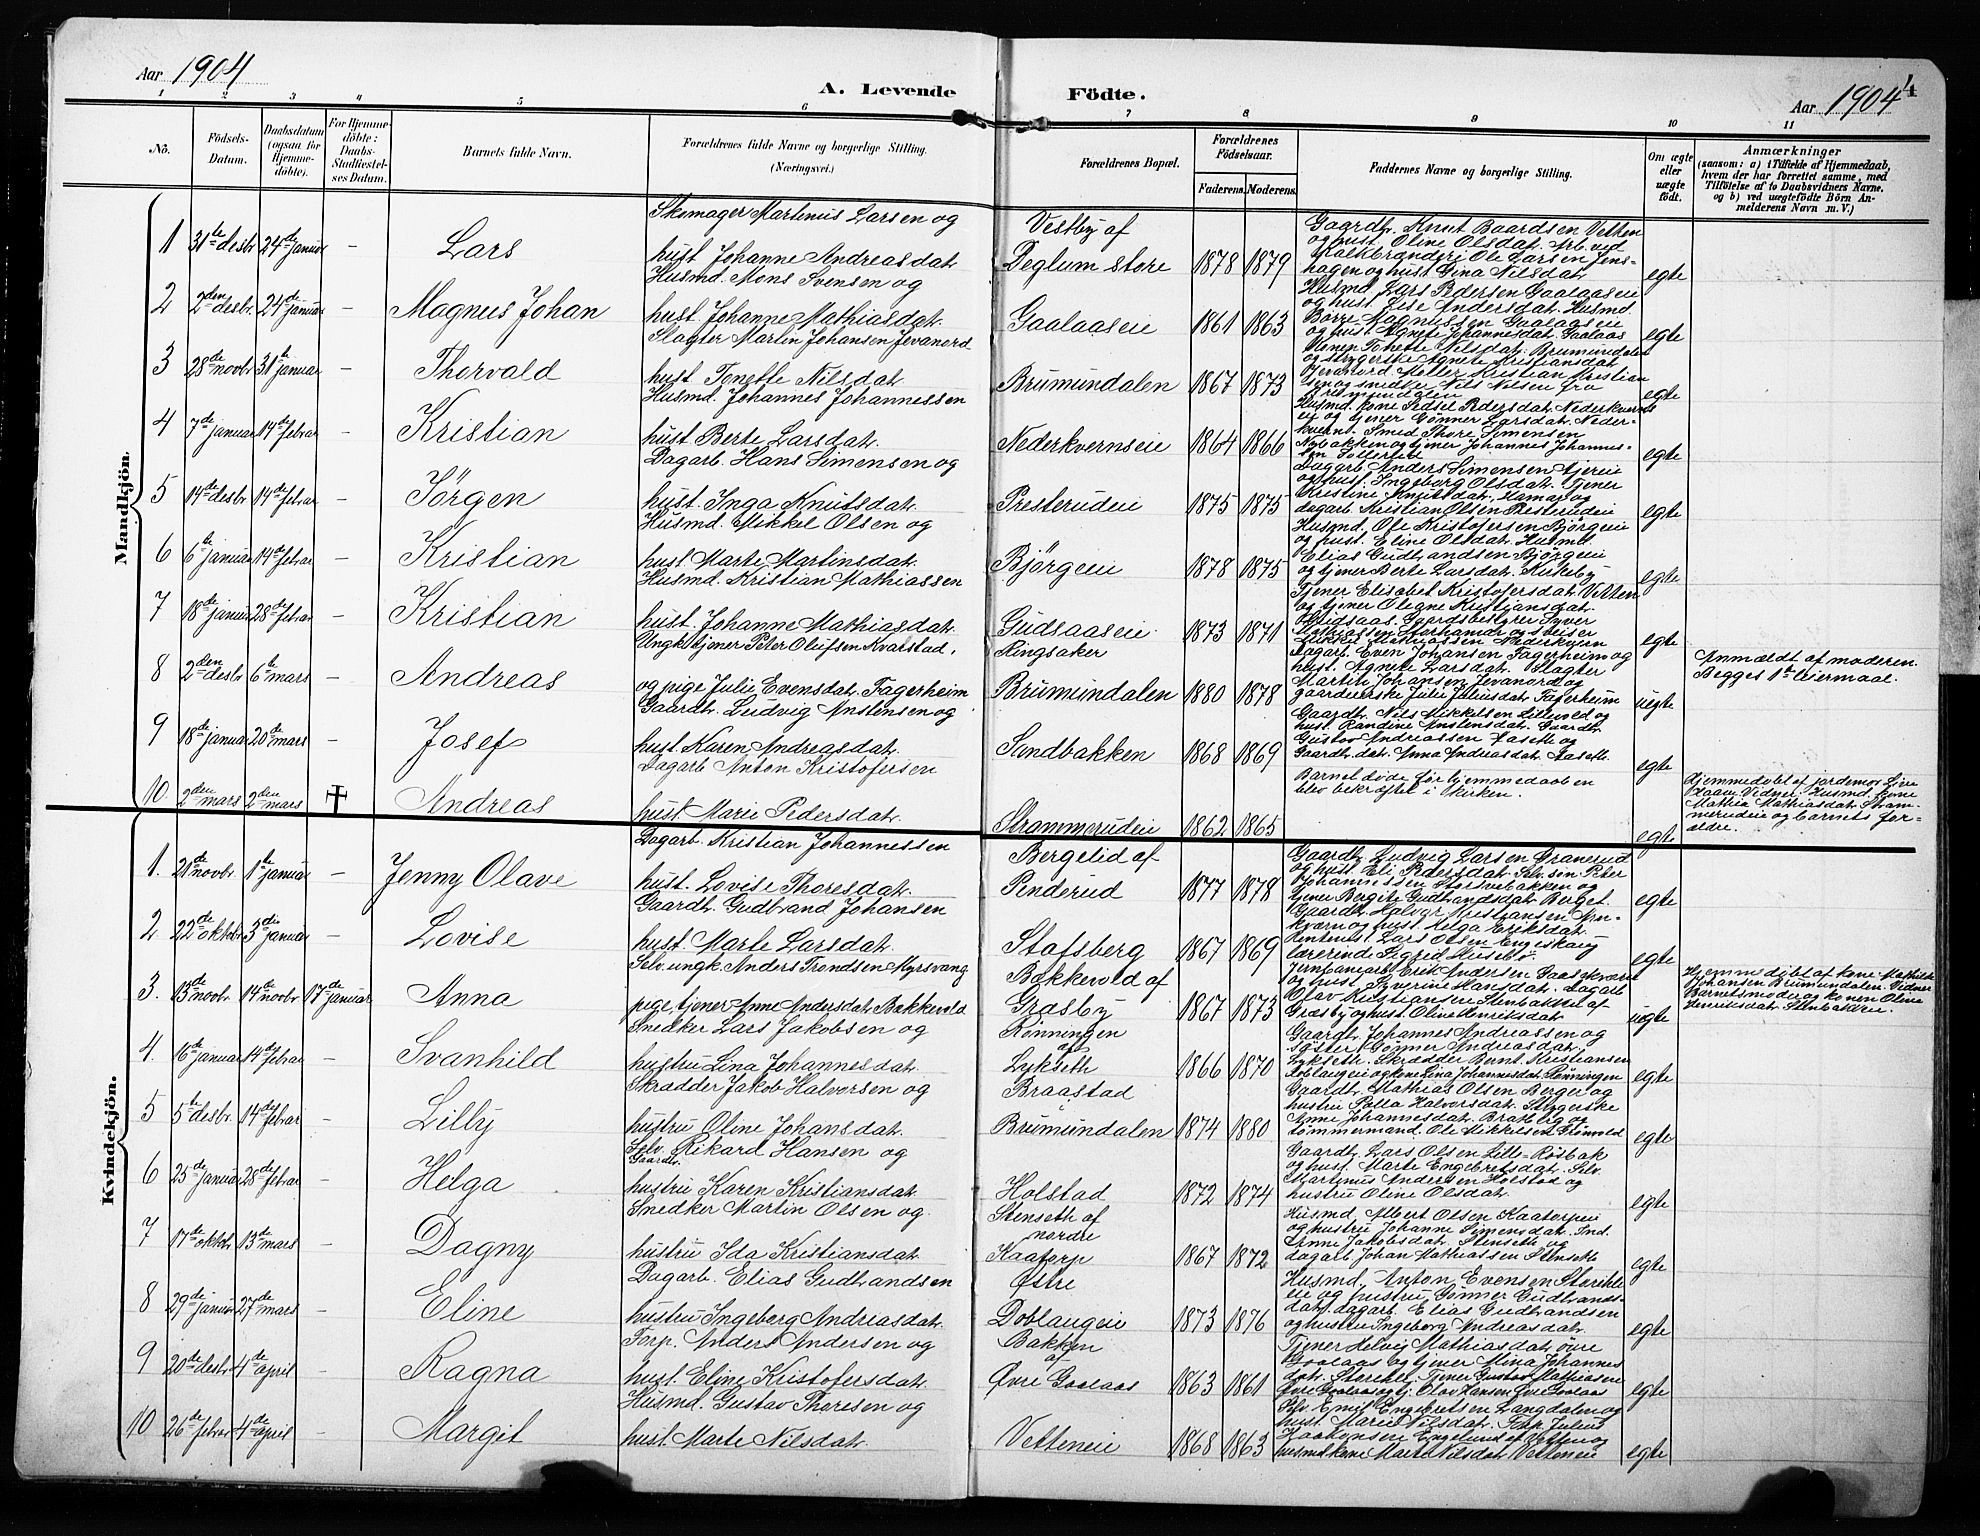 Aar 1904
A. Levende Födte.
Aar 1904
4
1 2 3 4 5 6 7 8 9 10 11
No.
Födsels-Datum.
Daabsdatum (ogsaa for Hjemme-döbte).
For Hjemme-döbte: Daabs-Stadfæstel-ses Datum.
Barnets fulde Navn.
Forældrenes fulde Navne og borgerlige Stilling. (Næringsvei.)
Forældrenes Bopæl.
Forældrenes Födselsaar.
Faderens. Moderens.
Faddernes Navne og borgerlige Stilling.
Om ægte eller uægte födt.
Anmærkninger
(saasom: a) i Tilfælde af Hjemmedaab, hvem der har forrettet samme, med Tilföielse af to Daabsvidners Navne. og b) ved uægtefödte Börn Anmelderens Navn m. V.)
Mandkjön.
1 31te desbr 24de januar – Lars
Skomager Martinus Larsen og
hust Johanne Andreasdat.
Vestby af
Deglum store 1878 1879
Gaardbr. Knut Baardsen Vetten
og hust. Oline Olsdat. Arb. ved
Kalkbrænderi Ole Larsen Jens-
hagen og hust Gina Nilsdat.
egte
2 2den desbr 24de januar – Magnus Johan
Husmd. Mons Svensen og
hust Johanne Mathiasdat.
Gaalaaseie 1861 1863
Husmd Lars Pedersen Gaalaaseie
og hust. Lise Andersdat. Husmd
Börre Magnussen Gaalaaseie
og hust. Agnete Johannesdat. Gaalaas
egte
3 28de novbr 31te januar Thorvald
Slagter Martin Johansen Jevanord
hust Tonette Nilsdat.
Brumundalen 1867 1873
Konen Tonette Nilsdat. Brumundalen
og strygerske Agnete Kristiansdat
Jevanord Möller Kristian Kristian
sen og snedker Nils Nilsen Öra
Brumundalen
egte
4 7de januar 14de febrar – Kristian
Husmd. Johannes Johannessen
hust. Berte Larsdat.
Nederkvernseie 1864 1866
Husmd. kone Sidsel Pedersdat. Nederkverns
eie og tjener Gönner Larsdat. Neder-
kvern. Smed Thore Simensen
Nybakken og tjener Johannes Johannes-
sen
egte
5 14de desbr 14de febrar – Jörgen
Dagarb. Hans Simensen og
hust. Inga Knutsdat.
Presterudeie 1875 1875
Dagarb Anders Simensen Hjereie
og hust. Ingeborg Olsdat. Tjener
Kristine Knutsdat. Hamar og
dagarb Kristian Olsen Presterudeie
egte
6 6te januar 14de febrar – Kristian
Husmd. Mikkel Olsen og
hust. Marte Martinsdat.
Björgeie 1878 1875
Husmd. Ole Kristofersen Björgeie
og hust. Eline Olsdat. Husmd.
Elias Gudbrandsen Björgeie
og tjener Berte Larsdat. Kirkeby
egte
7 18de januar 28de febrar – Kristian
Husmd. Kristian Mathiassen
hust. Johanne Mathiasdat.
Gudsaaseie. 1873 1871
Tjener Elisabet Kristofersdat. Vetten
og tjener Olegne Kristiansdat.
Gudsaas. Gaardsbestyrer Syver
Mathiassen Storhamar og sveiser
Mikkel Mathiassen Nederkvern
egte
8 2den desbr 6te mars – Andreas
Ungk. tjener Peter Olufsen Kvarstad,
og pige Julie Evensdat. Fagerheim
Ringsaker
Brumundalen 1880 1878
Dagarb. Even Johansen Fagerheim og
hust. Agnete Larsdat. Slagter
Martin Johansen Jevanord og
gaardeierske Julie Juliusdat. Fagerheim
uegte
Anmældt af moderen.
Begges 1ste leiermaal.
9 18de januar 20de mars – Josef
Gaardbr. Ludvig Anstensen og
hust. Karen Andreasdat.
Sandbakken 1868 1869
Gaardbr. Nils Mikkelsen Lilleveld og
hust. Randine Anstensdat. Gaardbr.
Gustav Andreassen Aaseth og
Gaardbr. dat. Anna Andreasdat. Aaseth.
egte
10. 2den mars 2den mars ✝ Andreas
Dagarb Anton Kristofersen
hust. Marie Pedersdat.
Strammerudeie 1862 1865
Barnet döde för hjemmedaaben
blev bekræftet i Kirken.
egte
Hjemmedöbt af jordemor Line
Haave Vidner: Husmd. kone
Mathia Mathiasdat. Stram-
merudeie og barnets for-
ældre.
Kvindekjön.
1. 21de novbr. 1te januar – Jenny Olave
Dagarb. Kristian Johannessen
hust. Lovise Thoresdat.
Bergelid af
Penderud 1877 1878
Gaardbr. Ludvig Larsen Granerud
og hust. Eli Pedersdat. Selv. sön Peter
Johannessen Storsvebakken og
tjener Bergite Gudbrandsdat. Berget.
egte
2 22de oktobr 3die januar – Lovise
Gaardbr. Gudbrand Johansen
hust. Marte Larsdat.
Stafsberg 1867 1869
Gaardbr. Halvor Kristiansen Arn-
kværn og hust. Helga Eriksdat.
Rentenist. Lars Olsen Engeskaug
lærerinde Sigrid Huseby
egte
3. 13de novbr. 14de novbr 17de januar Anna
Selv. ungk. Anders Trondsen Myrsvang
pige tjener Anne Andersdat. Bakkevold
Bakkevold af
Græsby 1867 1873
Jernbanearb. Erik Andersen Gaaskværn
og hust. Syverine Hansdat. Dagarb
Olav Kristiansen Stenbakken af
Græsby og hust. Oline Henriksdat
uegte
Hjemmedöbt af kone Mathilde
Johansen Brumundalen. Vidner
Barnets moder og konen Oline
Henriksdat Stenbakken.
4. 16de januar 14de febrar – Svanhild
Snedker Lars Jakobsen og
hustru Lina Johannesdat.
Rönningen
af
Lykseth 1866 1870
Gaardbr. Johannes Andreassen og
söster Gönner Andreasdat.
Lykseth. Skrædder Bernt. Kristiansen
Doblaugeie og kone Lina Johannesdat Rönningen
egte
5 5te desbr. 14de febrar – Lilly
Skrædder Jakob Halvorsen og
hustru Oline Johansdat.
Braastad
Brumundalen 1874 1880
Gaardbr. Mathias Olsen Berger og
hustru Polla Halvorsdat. Strygerske
Anne Johannesdat. Bratberg og
tömmermand. Ole Mikkelsen Grönvold
egte
6 25de januar 28de febrar – Helga
Selv. Gaardbr. Rikard Hansen og
hustru Karen Kristiansdat.
Holstad 1872 1874
Gaardbr. Lars Olsen Lille-Rösbak
og hust. Marte Engebretsdat. Selv.
Martinus Andersen Holstad og
hustru Oline Olsdat.
egte
7 17de oktobr. 13de mars – Dagny
Snedker Martin Olsen og
hustru Ida Kristiansdat.
Stenseth af
nordre
Kaatorp 1867 1872
Husmd. Albert Olsen Kaatorpeie
og hustru Johanne Simensdat. Ind.
Anne Jakobsdat. Stenseth og
dagarb Johan Mathiassen Stenseth
egte
8 29de januar 27de mars – Eline
Dagarb. Elias Gudbrandsen
hustru Ingeborg Andreasdat.
Östre
Doblaugeie 1873 1876
Husmd. Anton Evensen Storihle
eie og hustru Gönner Gudbrands-
dat. dagarb. Elias Gudbrandsen
og hustru Ingeborg Andreasdat.
egte
9 20de desbr 4de april – Ragna
Forp. Anders Andersen og
hust. Eline Kristofersdat.
Bakken
af
Övre Gaalaas 1863 1861
Tjener Helvig Mathiasdat. övre
Gaalaas og tjener Mina Johannes
dat. Storihle. Tjener Gustav Mathiasen
Övre Gaalaas og tj. Olav Hansen Övre Gaalaas
egte
10 26de febrar 4de april Margit
Husmd. Gustav Thoresen og
hust. Marte Nilsdat.
Vetteneie 1868 1863
Selv. Emil Engebretsen Langdalen og
hust. Marie Nilsdat. Forp. Julius
Haakonsen Engelund af Vetten og
husmd kone Marte Nilsdat Vetteneie
egte